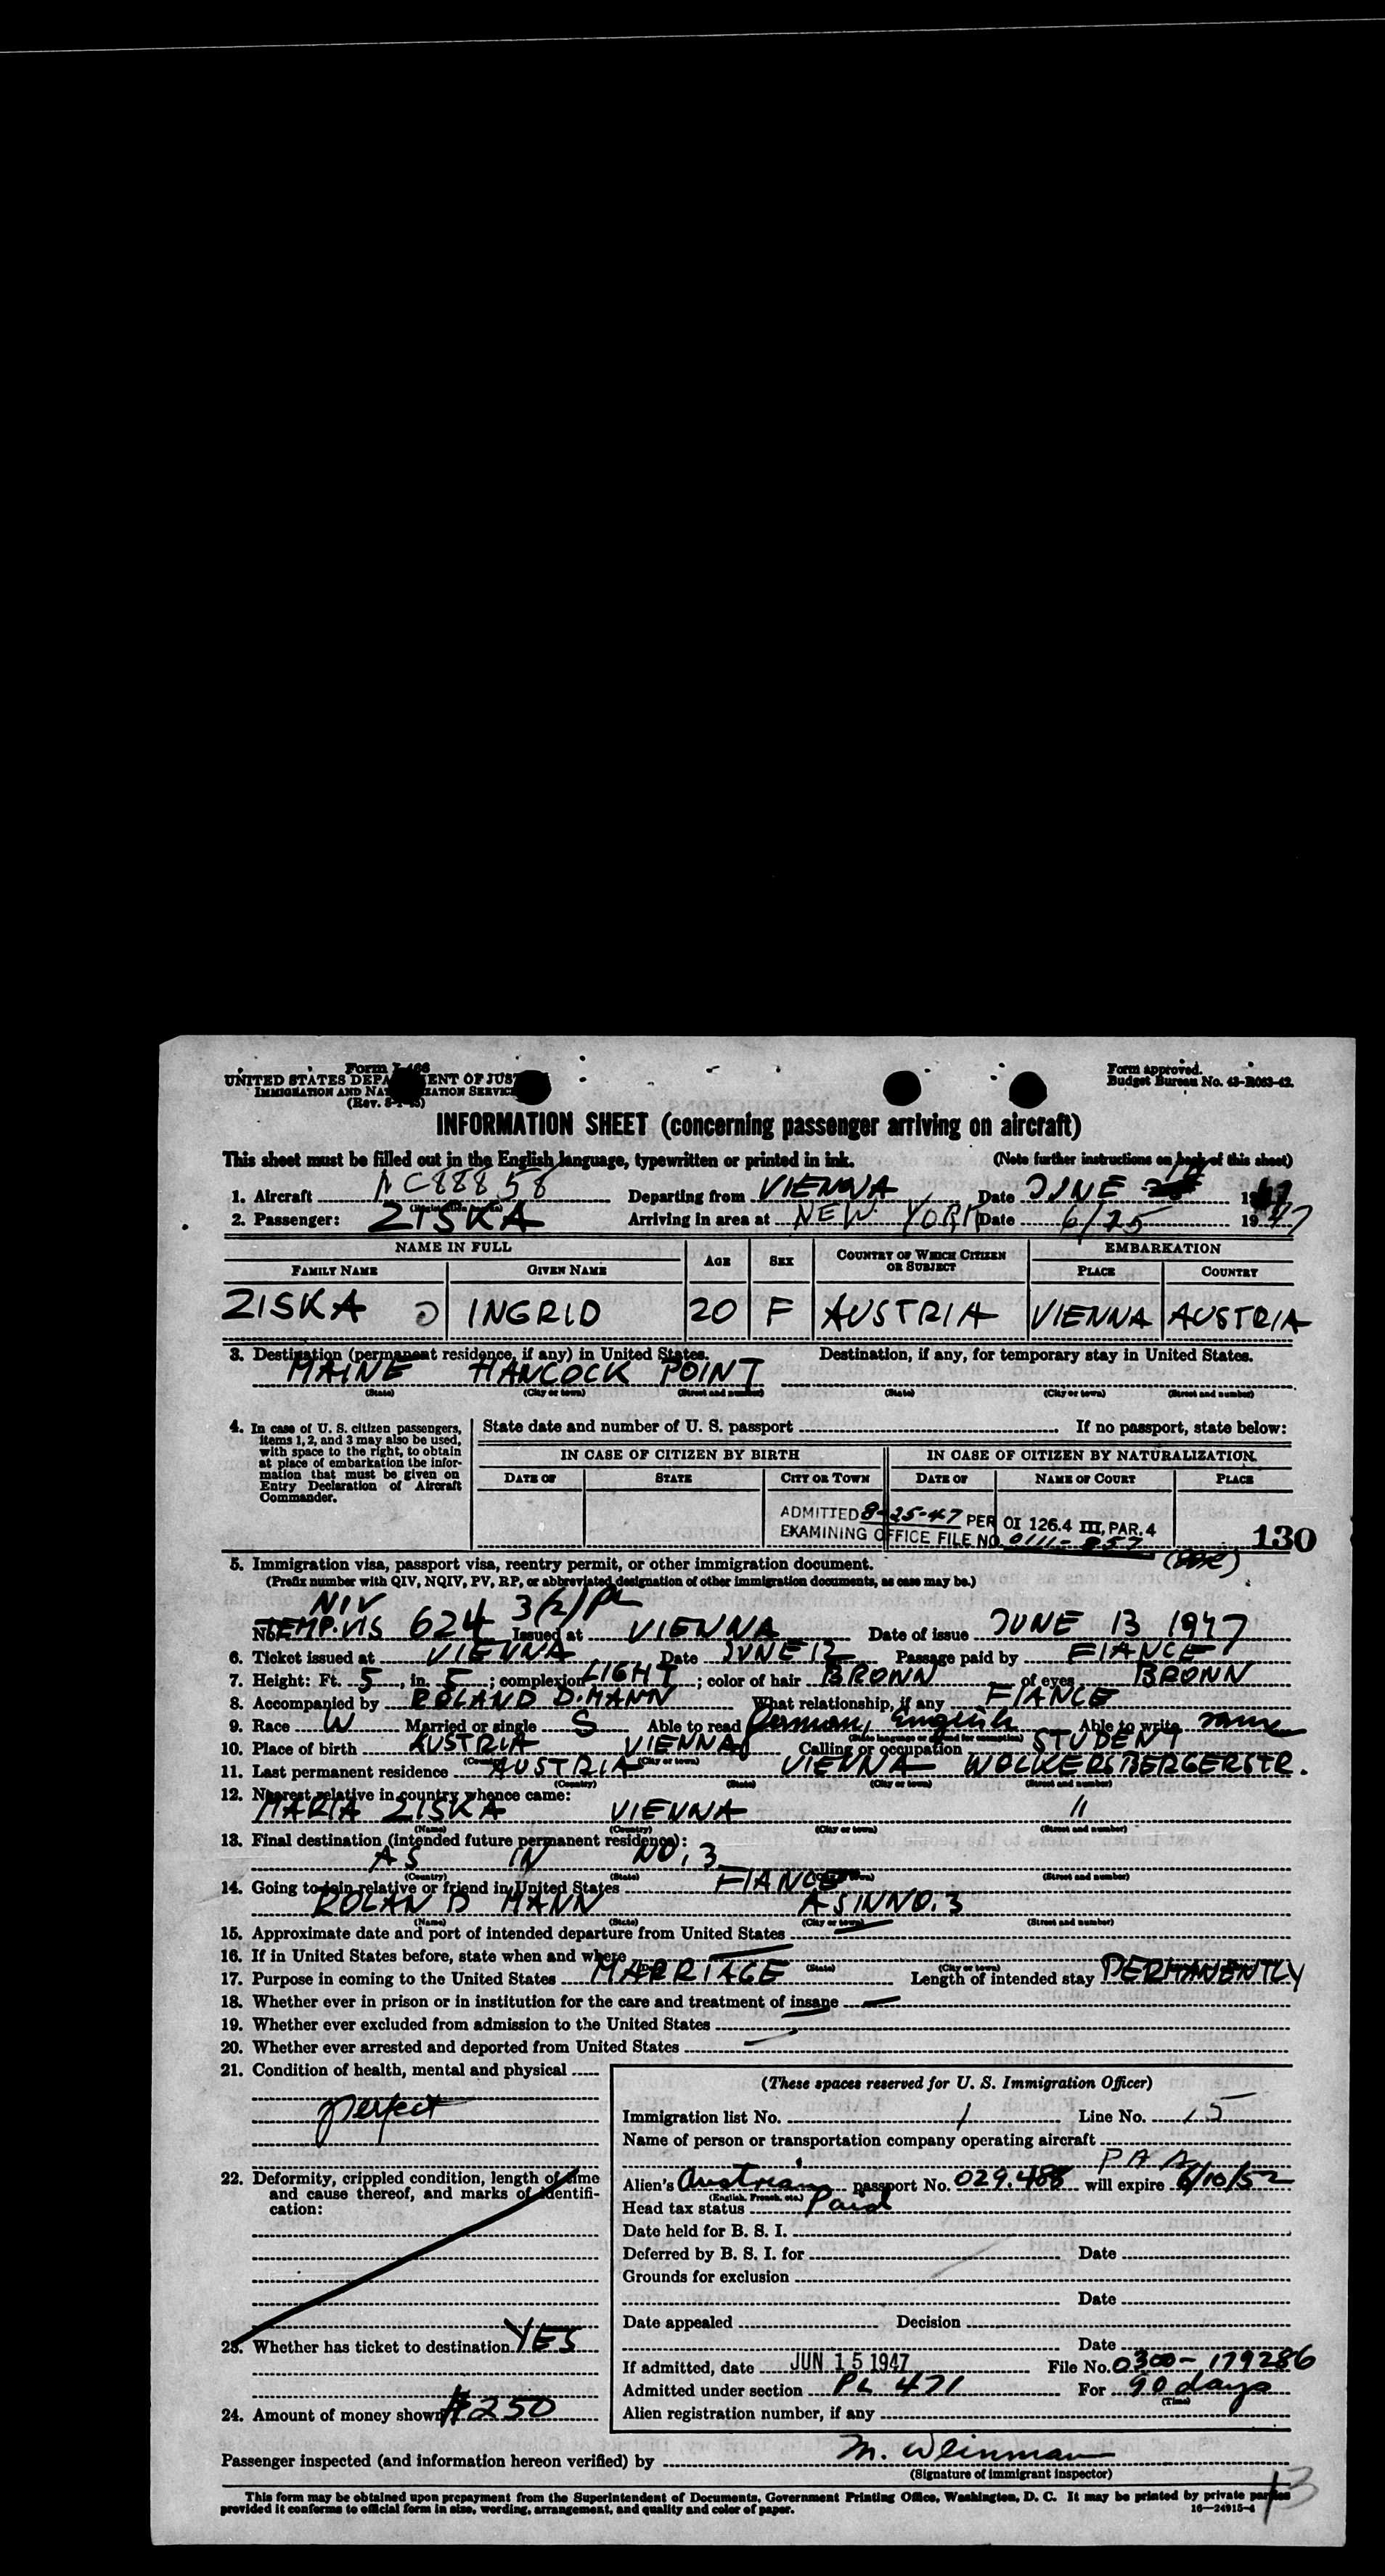 Form I-466
UNITED STATES DEPARTMENT OF JUSTICE
IMMIGRATION AND NATURALIZATION SERVICE
(Rev.
Form approved.
Budget Bureau No. 43-R063-42.
INFORMATION SHEET (concerning passenger arriving on aircraft)
This sheet must be filled out in the English language, typewritten or printed in ink. (Note further instructions on back of this sheet)
1. Aircraft NC88858 Departing from VIENNA Date JUNE 1947
(Registration number)
2. Passenger: ZISKA Arriving in area at NEW YORK Date 1947
NAME IN FULL AGE SEX COUNTRY OF WHICH CITIZEN OR SUBJECT EMBARKATION
FAMILY NAME GIVEN NAME PLACE COUNTRY
ZISKA INGRID 20 F AUSTRIA VIENNA AUSTRIA
3. Destination (permanent residence, if any) in United States. Destination, if any, for temporary stay in United States.
MAINE HANCOCK POINT
(State) (City or town) (Street and number) (State) (City or town) (Street and number)
4. In case of U. S. citizen passengers, items 1, 2, and 3 may also be used, with space to the right, to obtain at place of embarkation the information that must be given on Entry Declaration of Aircraft Commander.
State date and number of U. S. passport If no passport, state below:
IN CASE OF CITIZEN BY BIRTH IN CASE OF CITIZEN BY NATURALIZATION
DATE OF STATE CITY OR TOWN DATE OF NAME OF COURT PLACE
ADMITTED 8-25-47 PER OI 126.4 III, PAR. 4
EXAMINING OFFICE FILE NO. 0111-857 130
5. Immigration visa, passport visa, reentry permit, or other immigration document.
(Prefix number with QIV, NQIV, PV, RP, or abbreviated designation of other immigration documents, as case may be.)
NIV 3(2)
No. TEMP. VIS 624 Issued at VIENNA Date of issue JUNE 13 1947
6. Ticket issued at VIENNA Date JUNE 12 Passage paid by FIANCE
7. Height: Ft. 5, in. 5; complexion LIGHT; color of hair BROWN of eyes BROWN
8. Accompanied by ROLAND D. MANN What relationship, if any FIANCE
9. Race W Married or single S Able to read German, English Able to write same
(State language or ground for exemption)
10. Place of birth AUSTRIA VIENNA Calling or occupation STUDENT
(Country) (City or town)
11. Last permanent residence AUSTRIA VIENNA WOLKERSBERGERSTR.
(Country) (State) (City or town) (Street and number)
12. Nearest relative in country whence came:
MARIA ZISKA VIENNA "
(Name) (Country) (City or town) (Street and number)
13. Final destination (intended future permanent residence):
AS IN NO. 3
(Country) (State) (City or town) (Street and number)
14. Going to join relative or friend in United States FIANCE
ROLAND MANN AS IN NO. 3
(Name) (State) (City or town) (Street and number)
15. Approximate date and port of intended departure from United States —
16. If in United States before, state when and where —
(State) (City or town)
17. Purpose in coming to the United States MARRIAGE Length of intended stay PERMANENTLY
18. Whether ever in prison or in institution for the care and treatment of insane —
19. Whether ever excluded from admission to the United States —
20. Whether ever arrested and deported from United States —
21. Condition of health, mental and physical
perfect
22. Deformity, crippled condition, length of time and cause thereof, and marks of identification:
23. Whether has ticket to destination YES
24. Amount of money shown $250
(These spaces reserved for U. S. Immigration Officer)
Immigration list No. 1 Line No. 15
Name of person or transportation company operating aircraft
PAA
Alien's Austrian passport No. 029.488 will expire 6/10/52
(English, French, etc.)
Head tax status Paid
Date held for B. S. I.
Deferred by B. S. I. for Date
Grounds for exclusion
Date
Date appealed Decision
Date
If admitted, date JUN 15 1947 File No. 0300-179286
Admitted under section PL 471 For 90 days
(Time)
Alien registration number, if any
Passenger inspected (and information hereon verified) by M. Weinman
(Signature of immigrant inspector)
This form may be obtained upon prepayment from the Superintendent of Documents, Government Printing Office, Washington, D. C. It may be printed by private parties
provided it conforms to official form in size, wording, arrangement, and quality and color of paper. 16—24915-4
13